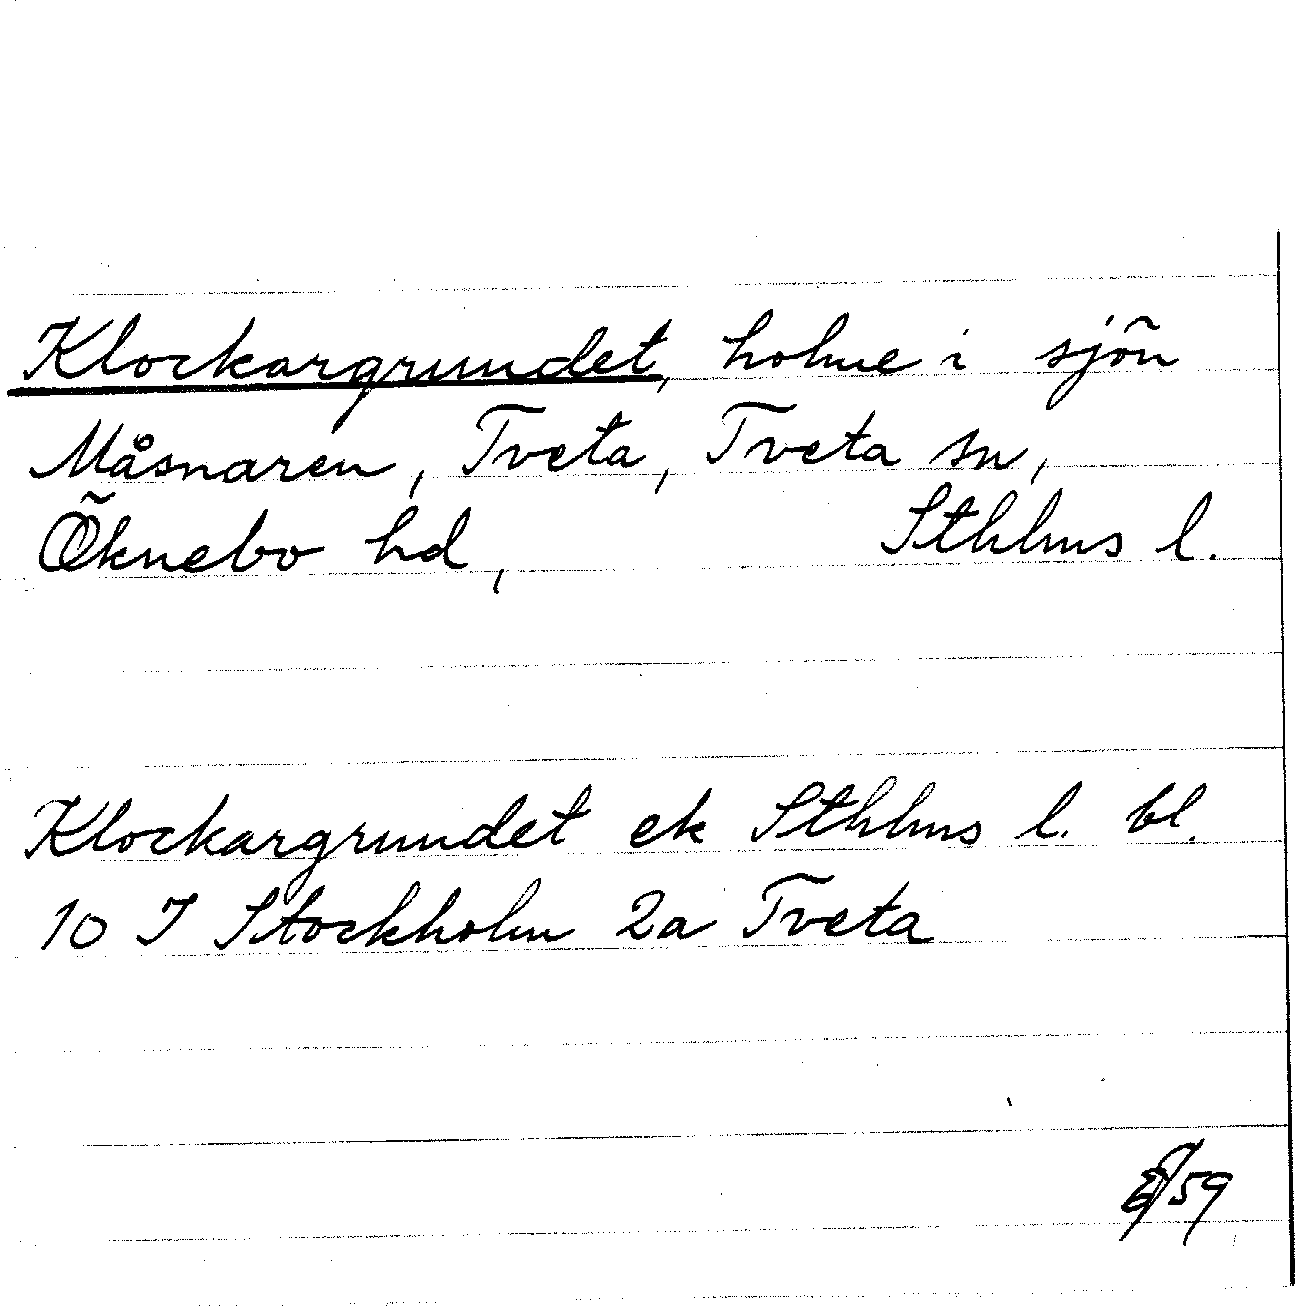 Klockargrundet, holme i sjön
Måsnaren, Tveta, Tveta sn,
Öknebo hd, Sthlms l.
Klockargrundet ek Sthlms l. bl.
10 I Stockholm 2a Tveta
/59